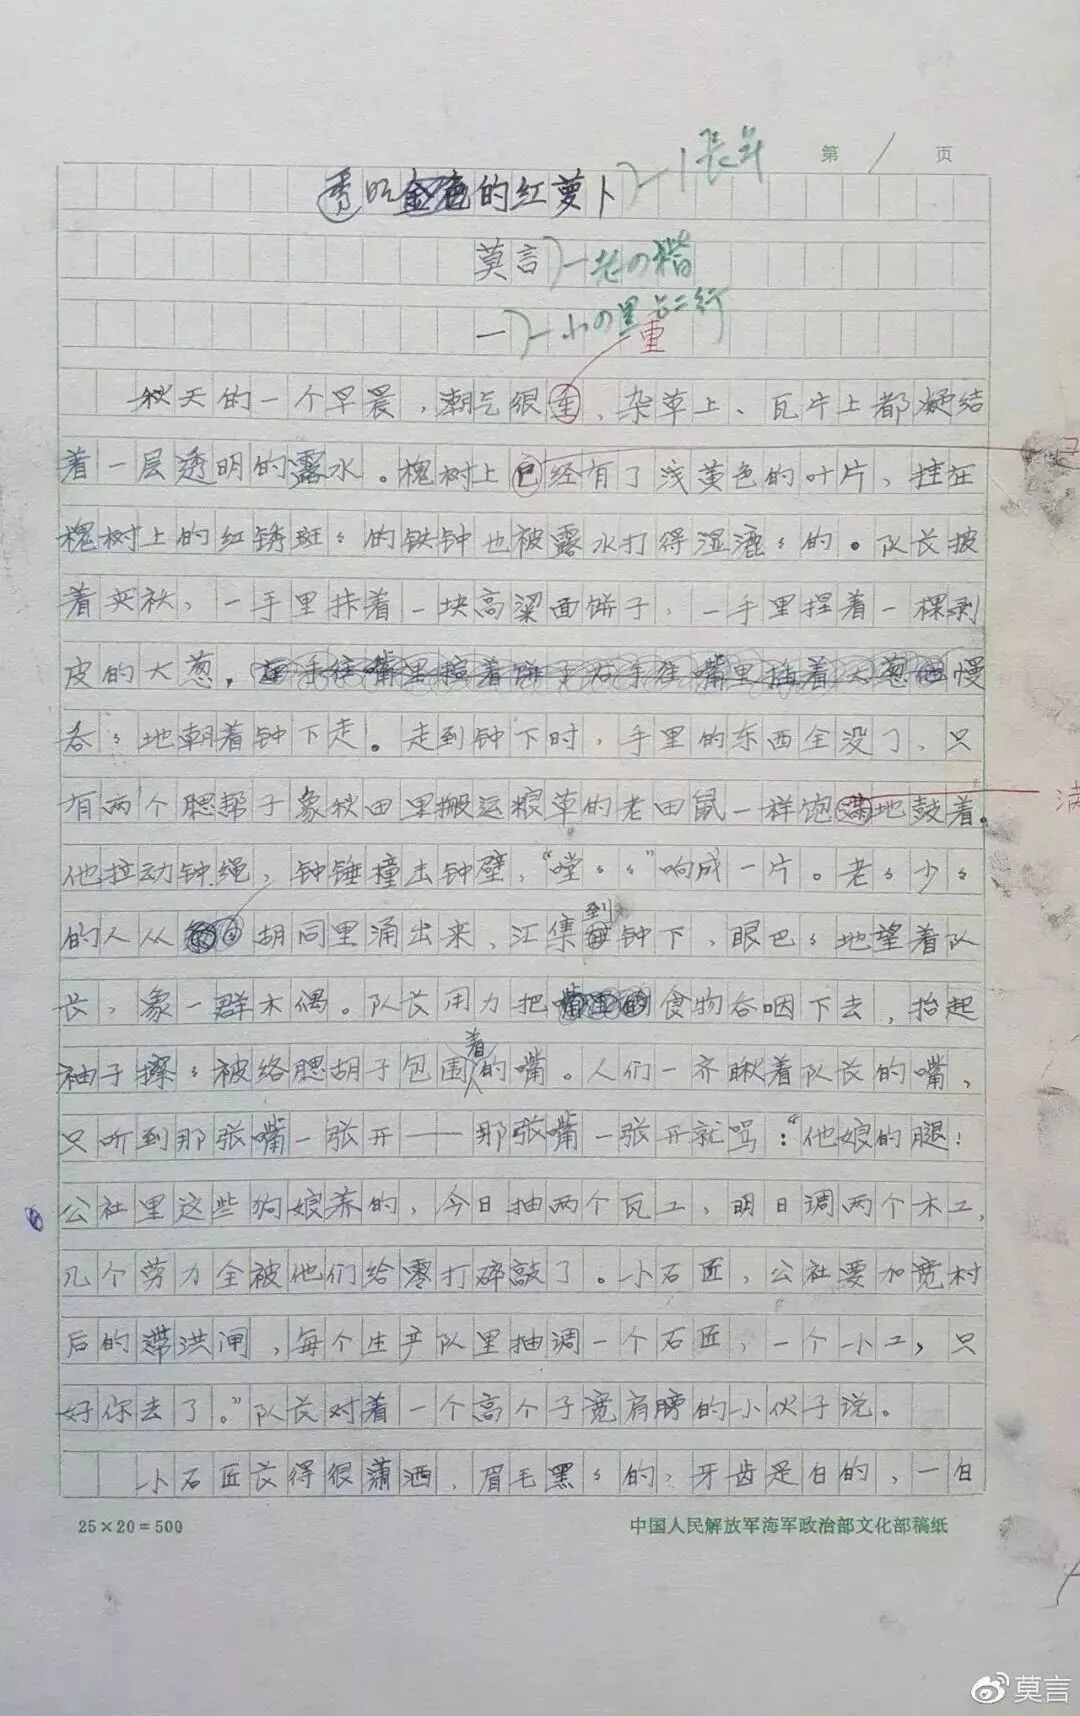 第 1 页
透明金色的红萝卜 1长牟
莫言 老4楷
一 小4黑占二行
重
秋天的一个早晨，潮气很重，杂草上、瓦片上都凝结
着一层透明的露水。槐树上已经有了浅黄色的叶片，挂在
槐树上的红锈斑々的铁钟也被露水打得湿漉々的。队长披
着夹袄，一手里拤着一块高粱面饼子，一手里捏着一棵剥
皮的大葱，慢
吞々地朝着钟下走。走到钟下时，手里的东西全没了，只
有两个腮帮子象秋田里搬运粮草的老田鼠一样饱满地鼓着。
满
他拉动钟绳，钟锤撞击钟壁，“嘡々々”响成一片。老々少々
的人从胡同里涌出来，汇集到钟下，眼巴々地望着队
长，象一群木偶。队长用力把食物吞咽下去，抬起
袖子擦々被络腮胡子包围着的嘴。人们一齐瞅着队长的嘴，
只听到那张嘴一张开——那张嘴一张开就骂：“他娘的腿！
公社里这些狗娘养的，今日抽两个瓦工，明日调两个木工，
几个劳力全被他们给零打碎敲了。小石匠，公社要加宽村
后的滞洪闸，每个生产队里抽调一个石匠，一个小工，只
好你去了。”队长对着一个高个子宽肩膀的小伙子说。
小石匠长得很潇洒，眉毛黑々的，牙齿是白的，一白
25×20=500
中国人民解放军海军政治部文化部稿纸
莫言